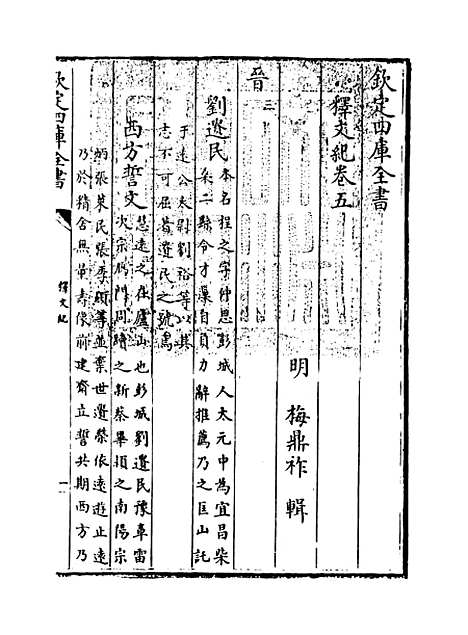 欽定四庫全書
釋文紀卷五
明 梅鼎祚 輯
晉
三
劉遺民
本名程之字仲思彭城人太元中為宜昌柴
桑二縣令才藻自負力辭推薦乃之匡山託
于遠公太尉劉裕等以其
志不可屈旌遺民之號焉
西方誓文
慧遠之在廬山也彭城劉遺民豫章雷
次宗鴈門周續之新蔡畢頴之南陽宗
炳張萊民張季碩等並棄世遺榮依遠遊止遠
乃於精舍無量壽像前建齋立誓共期西方乃
欽定四庫全書
釋文紀
一